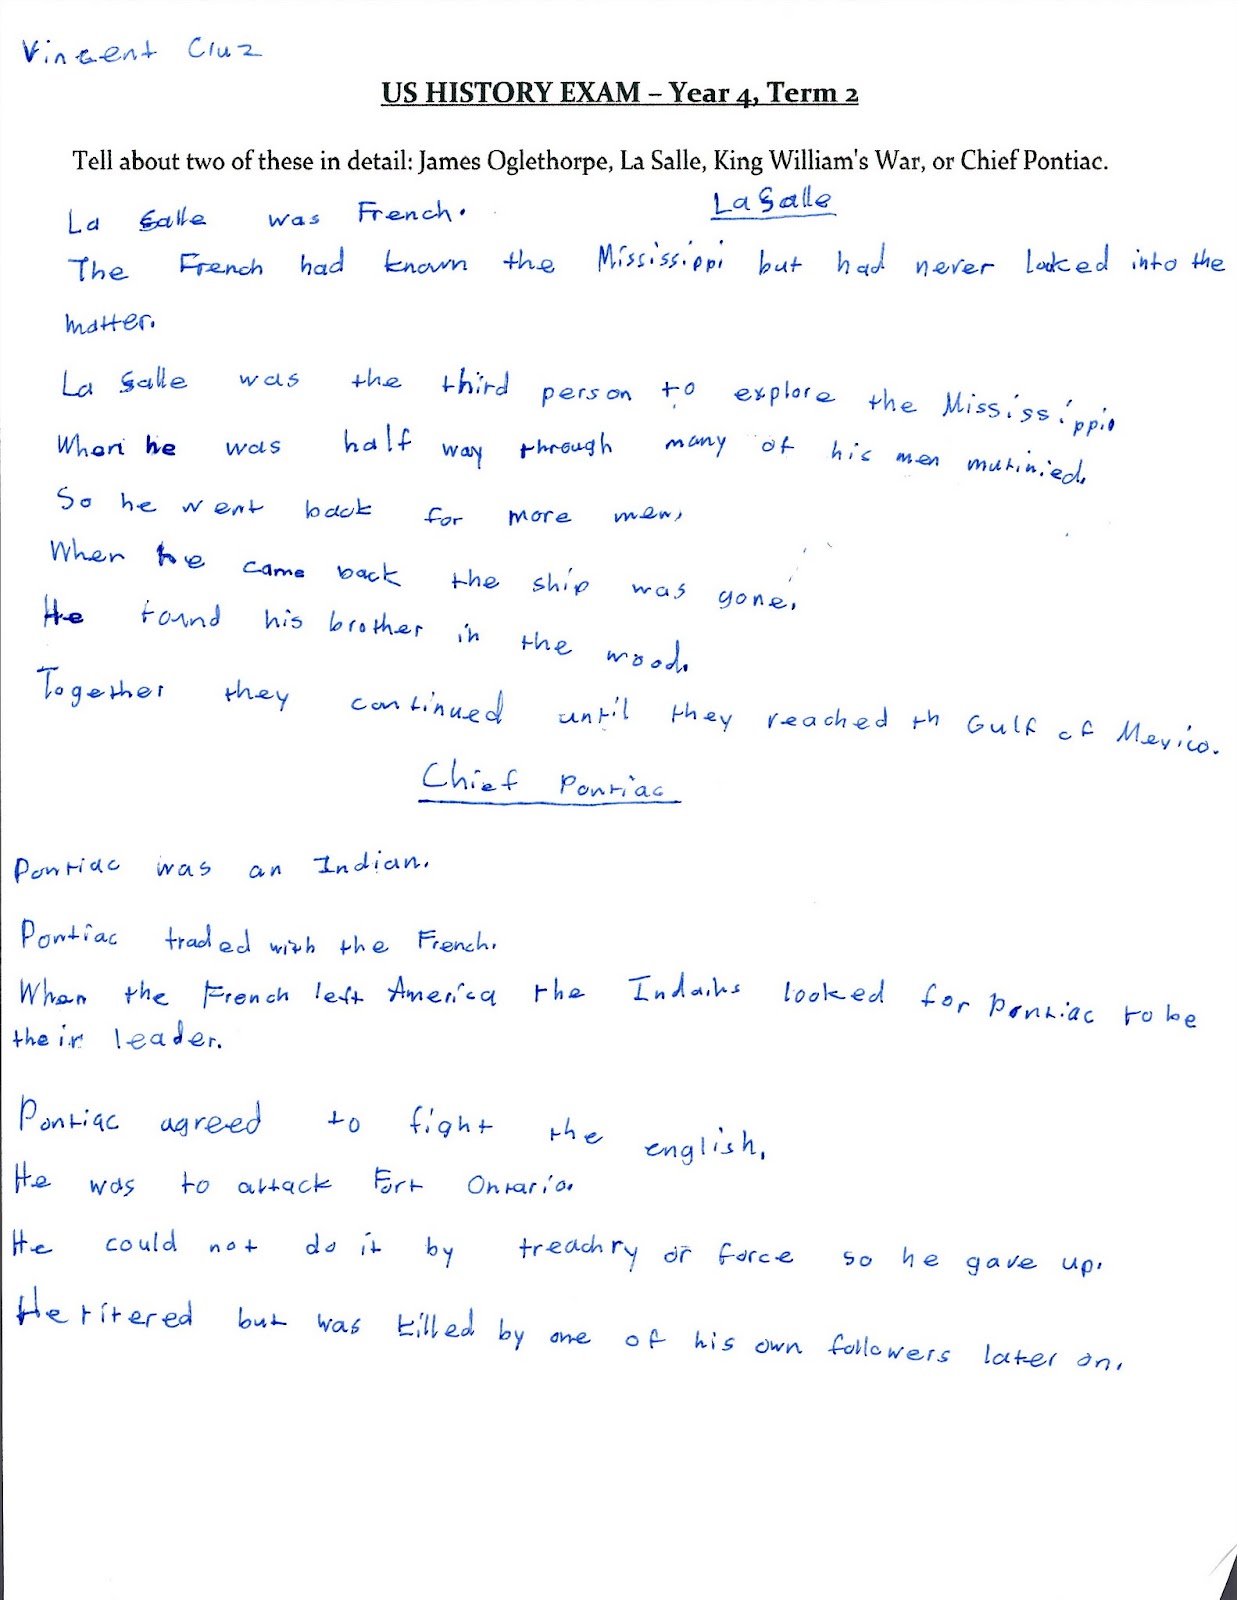 Vincent Cruz
US HISTORY EXAM – Year 4, Term 2
Tell about two of these in detail: James Oglethorpe, La Salle, King William's War, or Chief Pontiac.
La Salle
La Salle was French.
The French had known the Mississippi but had never looked into the
matter.
La Salle was the third person to explore the Mississippi.
When he was half way through many of his men mutinied.
So he went back for more men.
When he came back the ship was gone.
He found his brother in the wood.
Together they continued until they reached th Gulf of Mexico.
Chief Pontiac
Pontiac was an Indian.
Pontiac traded with the French.
When the French left America the Indains looked for Pontiac to be
their leader.
Pontiac agreed to fight the english.
He was to attack Fort Ontario.
He could not do it by treachry or force so he gave up.
He ritered but was killed by one of his own followers later on.